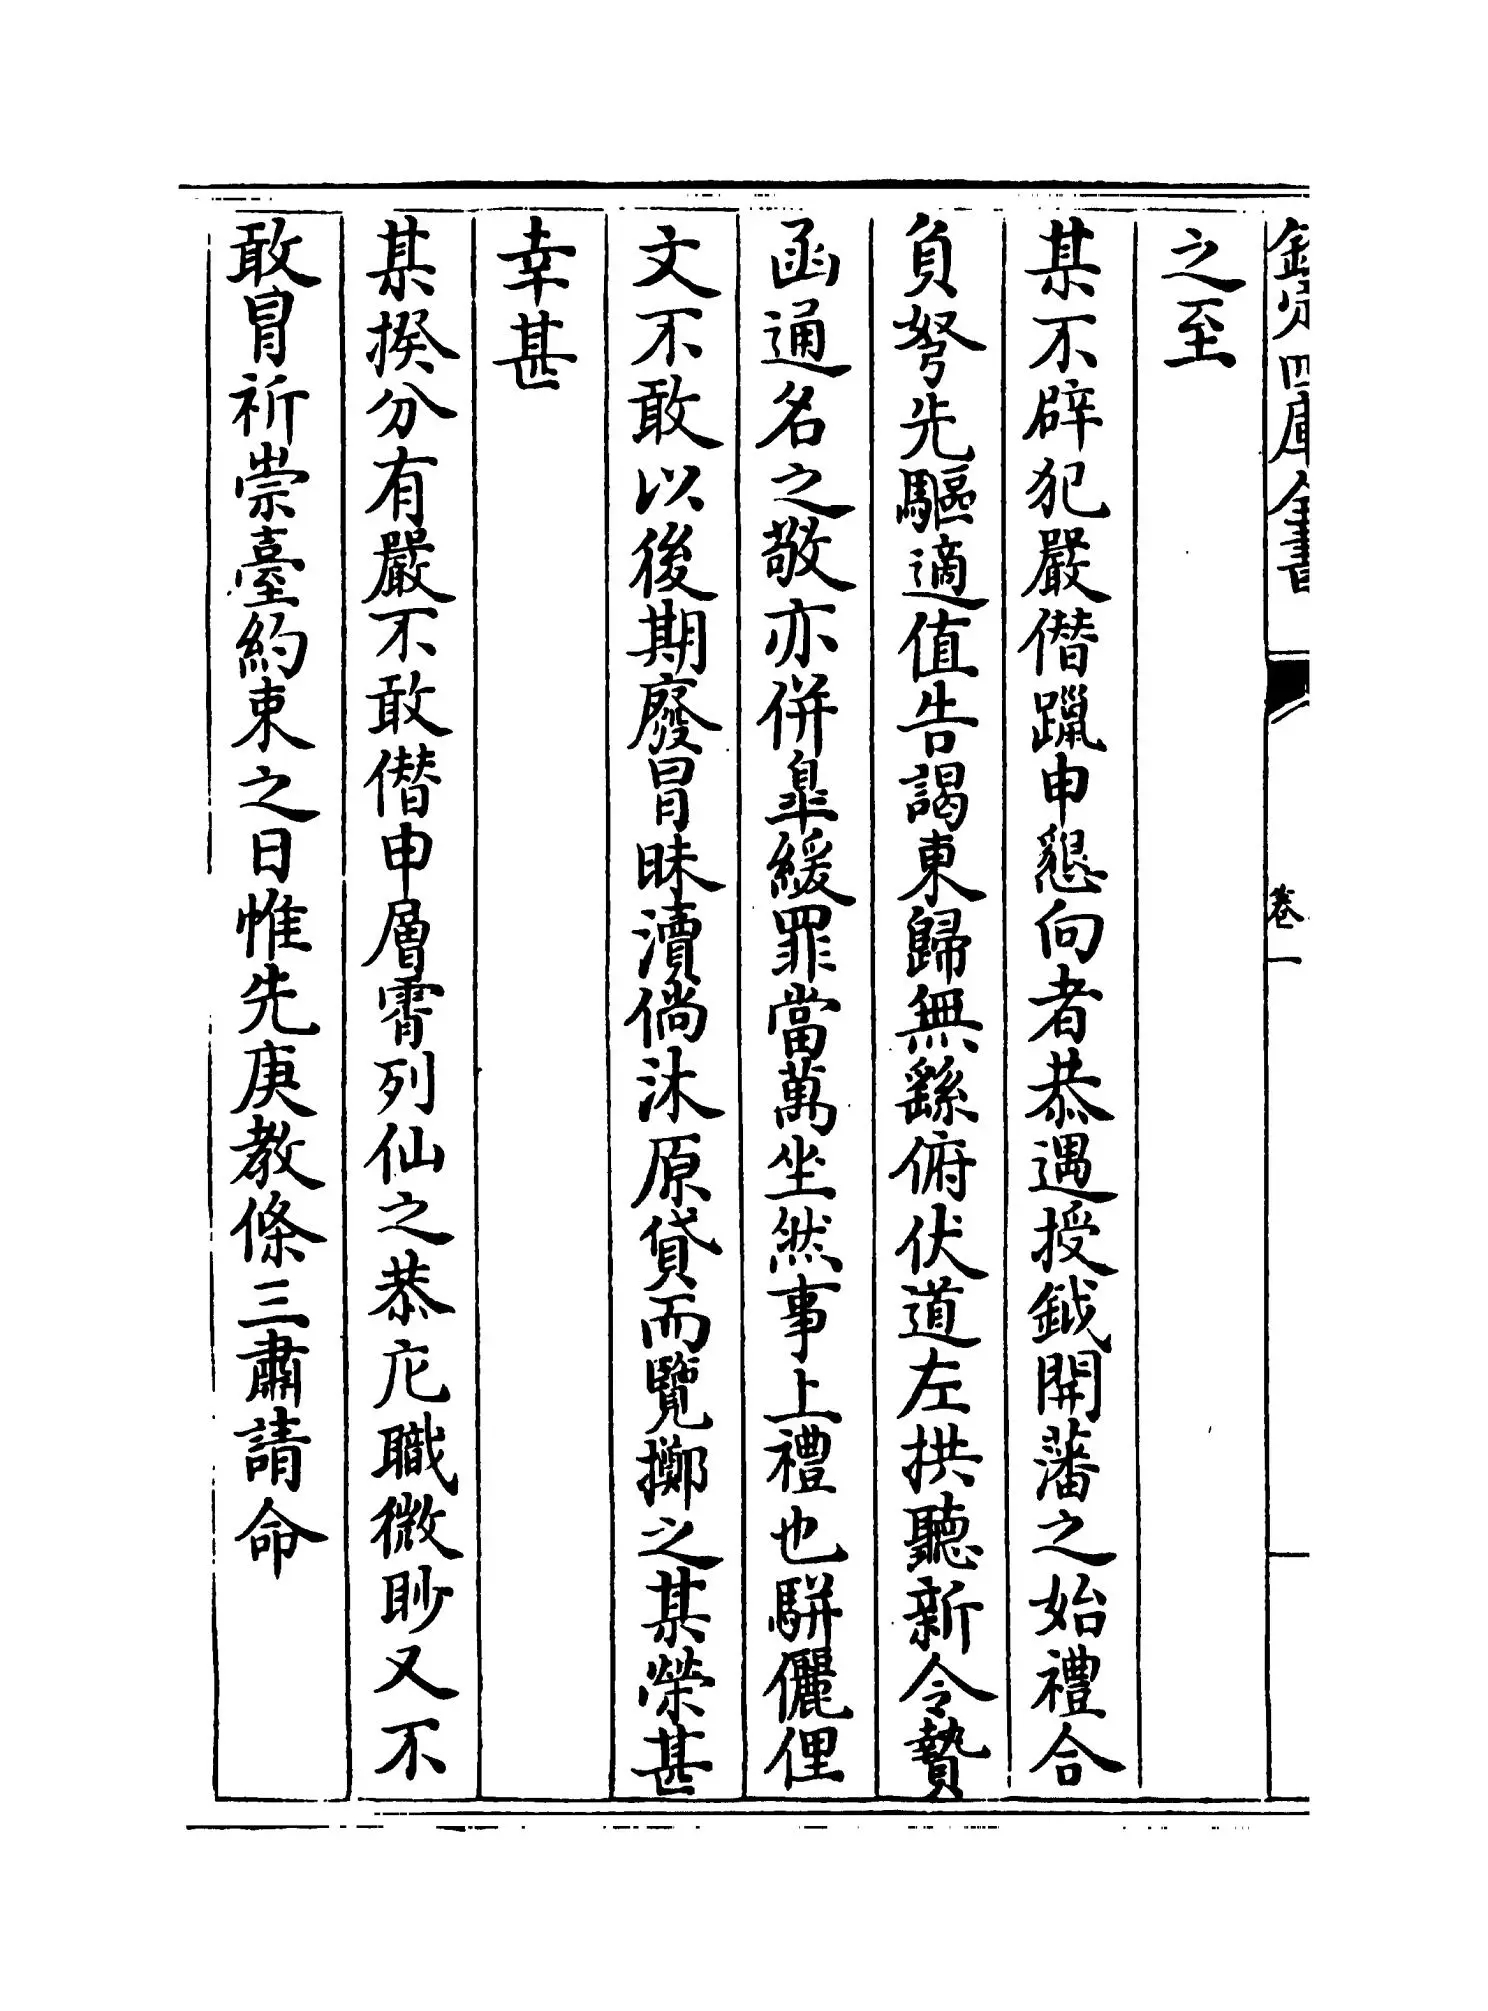 欽定四庫全書
卷一
之至
某不辟犯嚴僭躐申懇向者恭遇授鉞開藩之始禮合
負弩先驅適值告謁東歸無繇俯伏道左拱聽新令贄
函通名之敬亦併臯緩罪當萬坐然事上禮也駢儷俚
文不敢以後期廢冒昧瀆倘沐原貸而覽擲之某榮甚
幸甚
某揆分有嚴不敢僭申層霄列仙之恭庀職微眇又不
敢冒祈崇臺約束之日惟先庚教條三肅請命